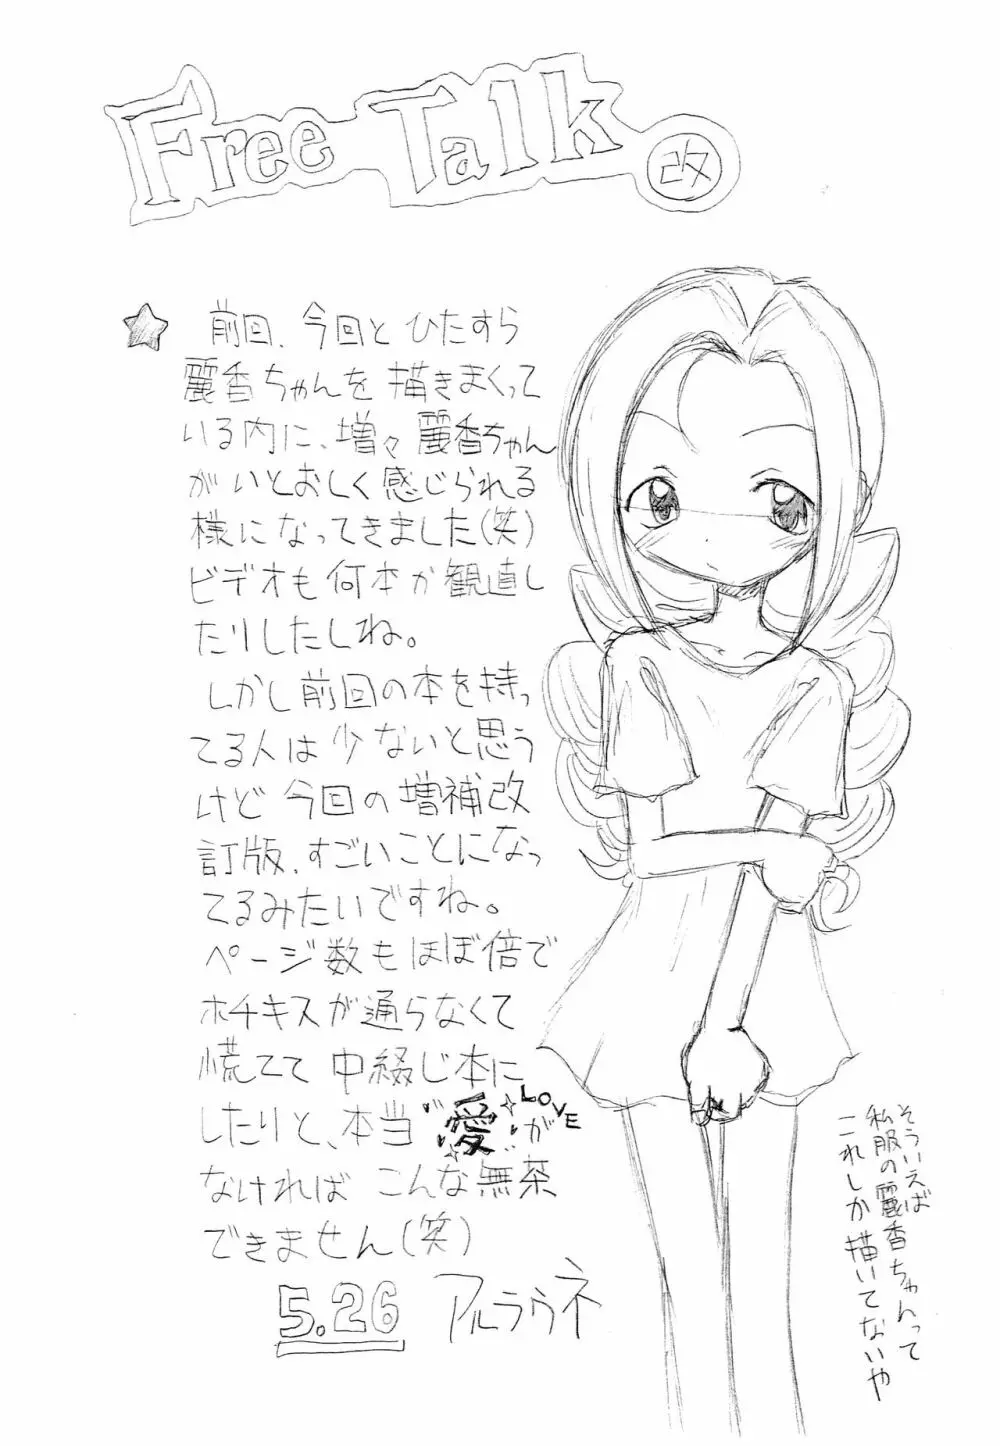 Free Talk 改
★ 前回、今回とひたすら
麗香ちゃんを描きまくって
いる内に、増々麗香ちゃん
がいとおしく感じられる
様になってきました(笑)
ビデオも何本か観直し
たりしたしね。
しかし前回の本を持っ
てる人は少ないと思う
けど今回の増補改
訂版、すごいことになっ
てるみたいですね。
ページ数もほぼ倍で
ホチキスが通らなくて
慌てて中綴じ本に
したりと、本当"愛"LOVEが
なければこんな無茶
できません(笑)
5.26 アルラウネ
そういえば
私服の麗香ちゃんって
これしか描いてないや